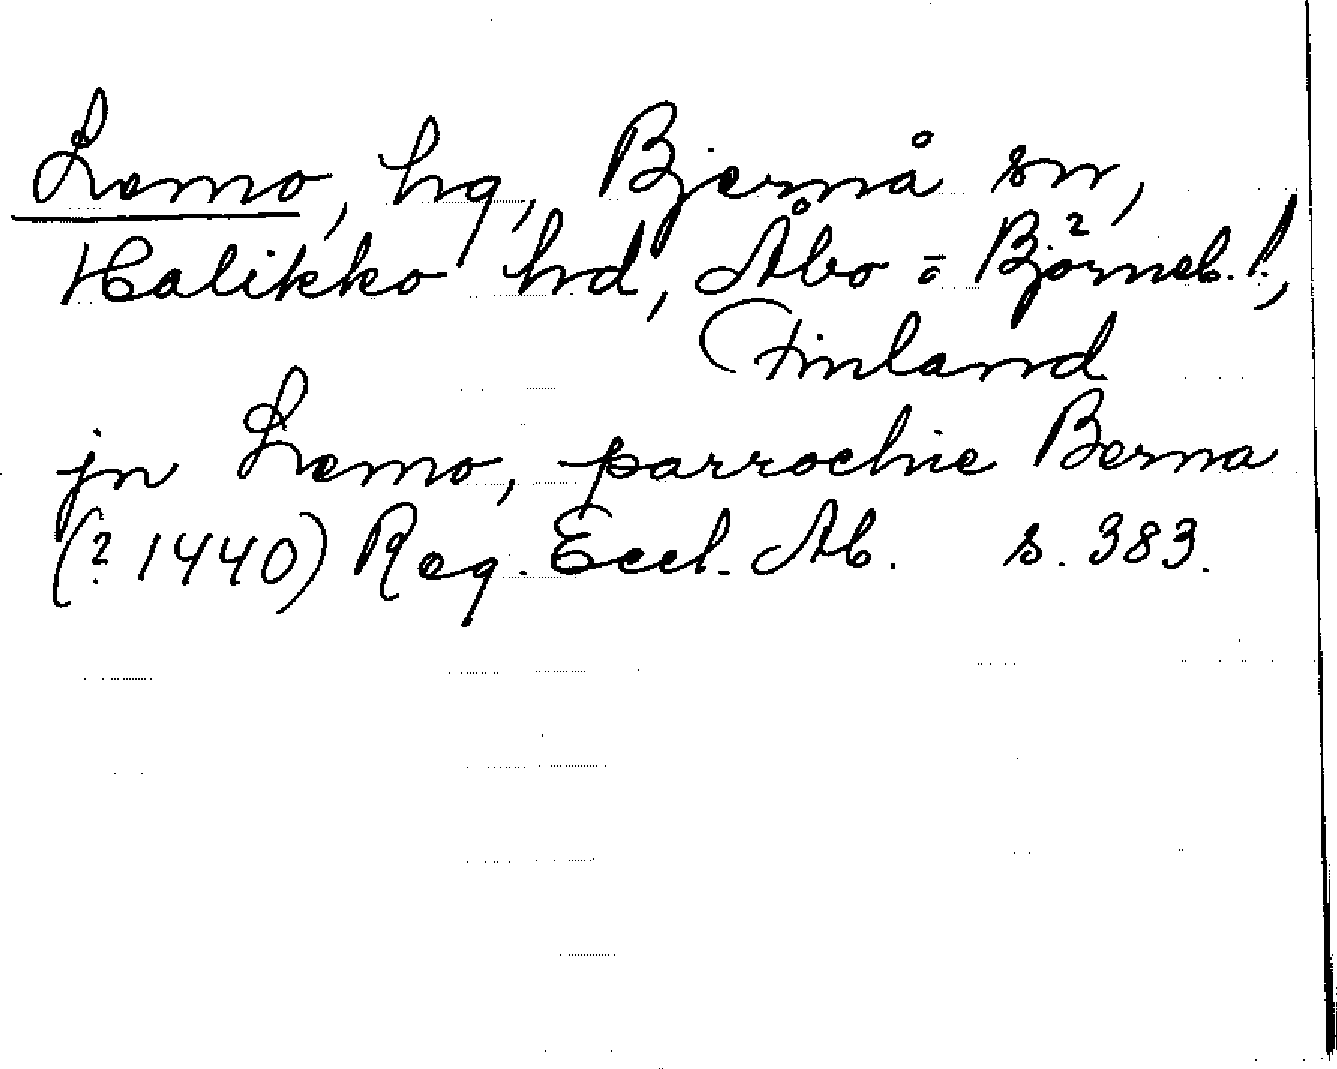 Lemo, hg, Bjernå sn,
Halikko hd, Åbo = Björneb. l.,
Finland
jn Lemo, parrochie Berna
(? 1440) Reg. Eccl. Ab. s. 383.